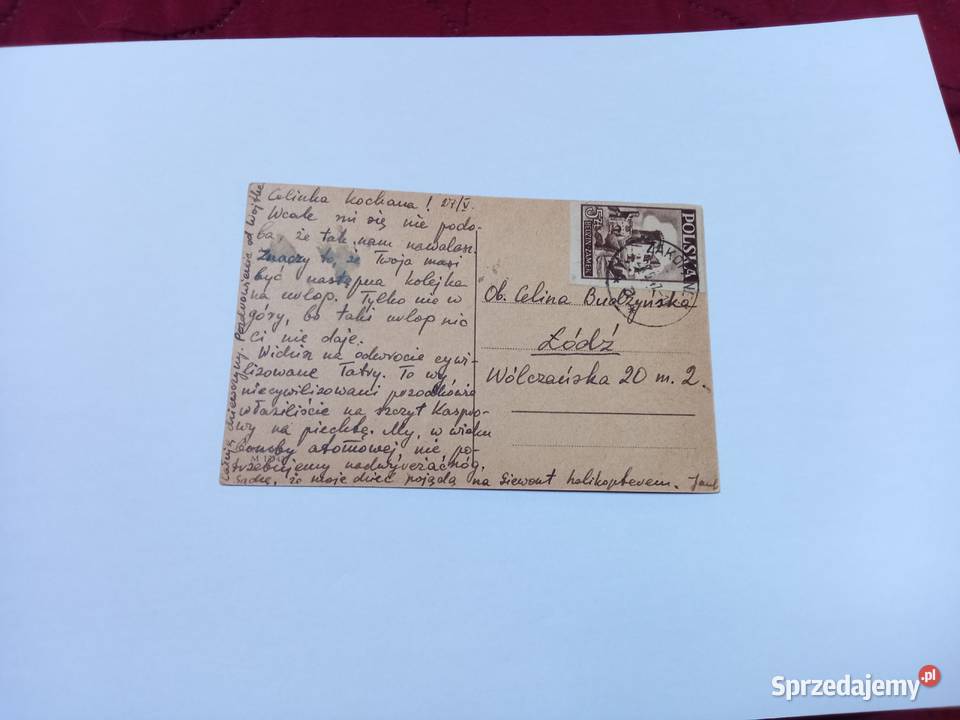 Celinka kochana! 27/V.
Wcale mi się nie podo-
ba, że tak nam nawalasz.
Znaczy to, że Twoja musi
być następna kolejka
na urlop. Tylko nie w
góry, bo taki urlop nic
Ci nie daje.
Widzisz na odwrocie cywi-
lizowane Tatry. To wy
niecywilizowani przodkowie
właziliście na szczyt Kaspro-
wy na piechtę. My, w wieku
bomby atomowej nie po-
trzebujemy nadwyrężać nóg.
że moje dzieci pojadą na Giewont helikopterem.
Całuję dziewczyny. Pozdrowienia od Wojtka
POLSKA
5 ZŁ
BĘDZIN-ZAMEK
ZAKO
Ob. Celina Budzyńska
Łódź
Wólczańska 20 m. 2.
Sprzedajemy.pl